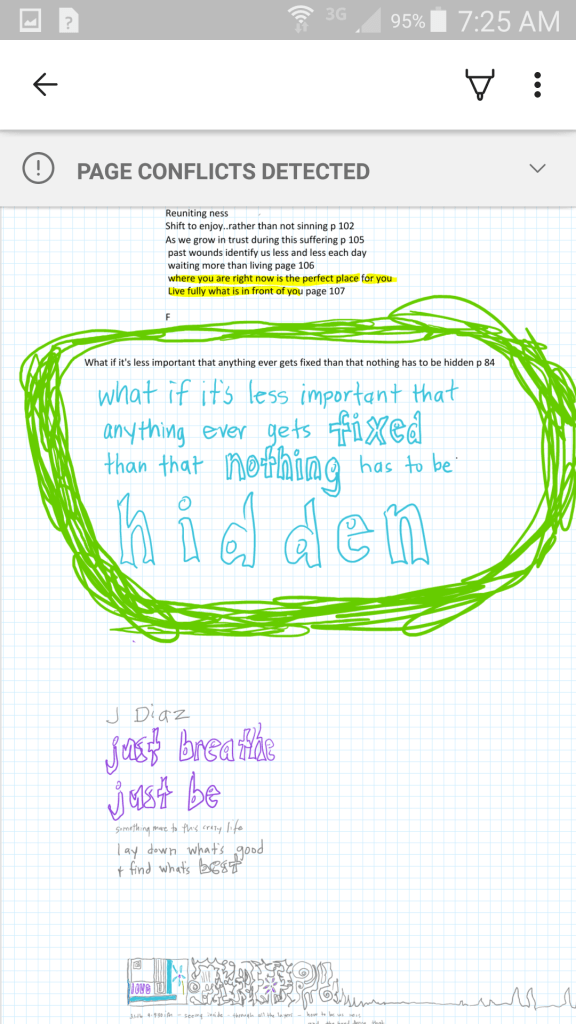 3G 95% 7:25 AM
PAGE CONFLICTS DETECTED
Reuniting ness
Shift to enjoy..rather than not sinning p 102
As we grow in trust during this suffering p 105
past wounds identify us less and less each day
waiting more than living page 106
where you are right now is the perfect place for you
Live fully what is in front of you page 107
F
What if it's less important that anything ever gets fixed than that nothing has to be hidden p 84
what if it's less important that
anything ever gets fixed
than that nothing has to be
hidden
J Diaz
just breathe
just be
something more to this crazy life
lay down what's good
+ find what's best
love
seeing inside - through all the layers -